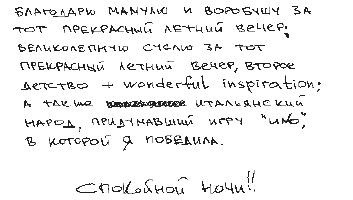 БЛАГОДАРЮ МАМУЛЮ И ВОРОБУШУ ЗА
ТОТ ПРЕКРАСНЫЙ ЛЕТНИЙ ВЕЧЕР;
ВЕЛИКОЛЕПНУЮ СЮЗЮ ЗА ТОТ
ПРЕКРАСНЫЙ ЛЕТНИЙ ВЕЧЕР, ВТОРОЕ
ДЕТСТВО + wonderful inspiration;
А ТАКЖЕ ИТАЛЬЯНСКИЙ
НАРОД, ПРИДУМАВШИЙ ИГРУ "УНО",
В КОТОРОЙ Я ПОБЕДИЛА.
СПОКОЙНОЙ НОЧИ!!